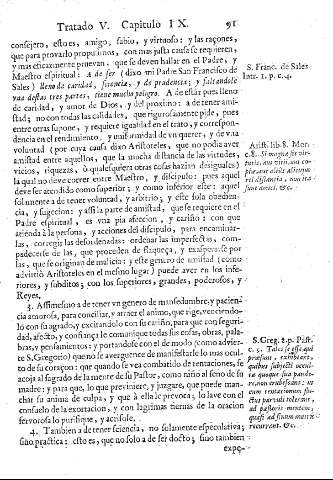 Tratado V. Capitulo IX. 91
consejero, esto es, amigo, sabio, y virtuoso: y las raçones,
que para provarlo propusimos, con mas justa causa se requieren,
y mas eficazmente prueban, que se deven hallar en el Padre, y
Maestro espiritual: A de ser (dixo mi Padre San Francisco de
Sales) lleno de caridad, sciencia, y de prudencia, y faltandole
vna destas tres partes, tiene mucho peligro. A de estár pues lleno
de caridad, y amor de Dios, y del proximo: à de tener amis-
tad; no con todas las calidades, que rigurosamente pide, pues
entre otras supone, y requiere igualdad en el trato, y correspon-
dencia en el rendimiento, y vna amistad de vn querer, y de vna
voluntad (por cuya causa dixo Aristoteles, que no podia aver
amistad entre aquellos, que la mucha distancia de las virtudes,
vicios, riquezas, ò qualesquiera otras cosas hazian desiguales)
la qual no deve correr entre Maestro, y discipulo: pues aquel
deve ser atendido como superior, y como inferior este: aquel
solamente à de tener voluntad, y arbitrio; y este sola obedien-
cia, y sugecion: y assi la parte de amistad, que se requiere en el
Padre espiritual, es vna pia afeccion, y cariño; con que
atienda à la persona, y acciones del discipulo, para encaminar-
las, corregir las desordenadas: ordenar las imperfectas, com-
padecerse de las, que proceden de flaqueza, y exasperarse por
las, que se originan de malicia: y este genero de amistad (como
advirtió Aristoteles en el mesmo lugar) puede aver en los infe-
riores, y subditos; con los superiores, grandes, poderosos, y
Reyes.
3. Assimesmo à de tener vn genero de mansedumbre, y pacien-
cia amorosa, para conciliar, y atraer el animo, que rige, venciendo-
lo con su agrado, y excitandolo con su cariño, para que con seguri-
dad, afecto, y confiança le comunique todas sus cosas, obras, pala-
bras, y pensamientos: y portandose con el de modo (como advier-
te S. Gregorio) que no se averguence de manifestarle lo mas ocul-
to de su coraçon: que quando se vea combatido de tentaciones, se
acoja al sagrado de la mente de su Pastor, como niño al seno de su
madre: y para que, lo que previniere, y juzgare, que puede man-
char su anima de culpa, y que à ella le provoca; lo lave con el
consuelo de la exortacion, y con lagrimas tiernas de la oracion
fervorosa lo purifique, y acrisole.
4. Tambien à de tener sciencia, no solamente especulativa;
sino practica: esto es, que no solo à de ser docto; sino tambien
expe-
S. Franc. de Sales
Intr. 1. p. c. 4.
Arist. lib. 8. Mor.
c. 8.
S. Greg. 2. p. Past.
c. 5.